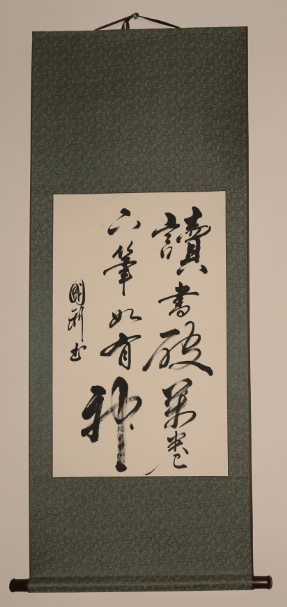 讀書破萬卷
下筆如有神
國利書